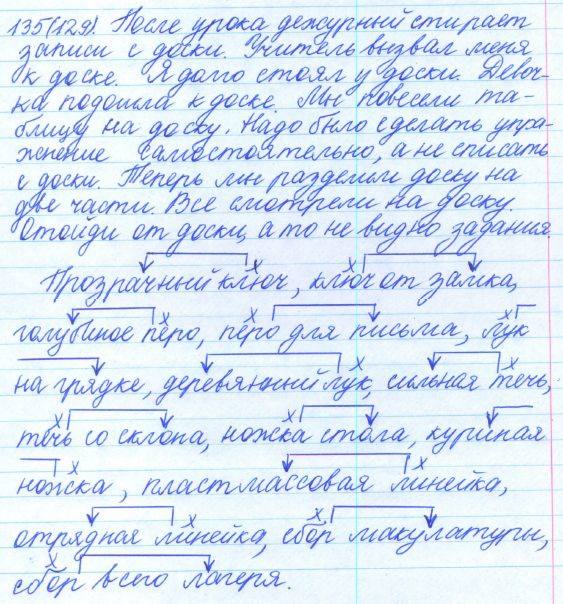 135(129). После урока дежурный стирает
записи с доски. Учитель вызвал меня
к доске. Я долго стоял у доски. Девоч-
ка подошла к доске. Мы повесели та-
блицу на доску. Надо было сделать упра-
жнение самостоятельно, а не списать
с доски. Теперь мы разделили доску на
две части. Все смотрели на доску.
Отойди от доски, а то не видно задания
Прозрачный ключ, ключ от замка,
голубиное перо, перо для письма, лук
на грядке, деревянный лук, сильная течь,
течь со склона, ножка стола, куриная
ножка, пластмассовая линейка,
отрядная линейка, сбор макулатуры,
сбор всего лагеря.